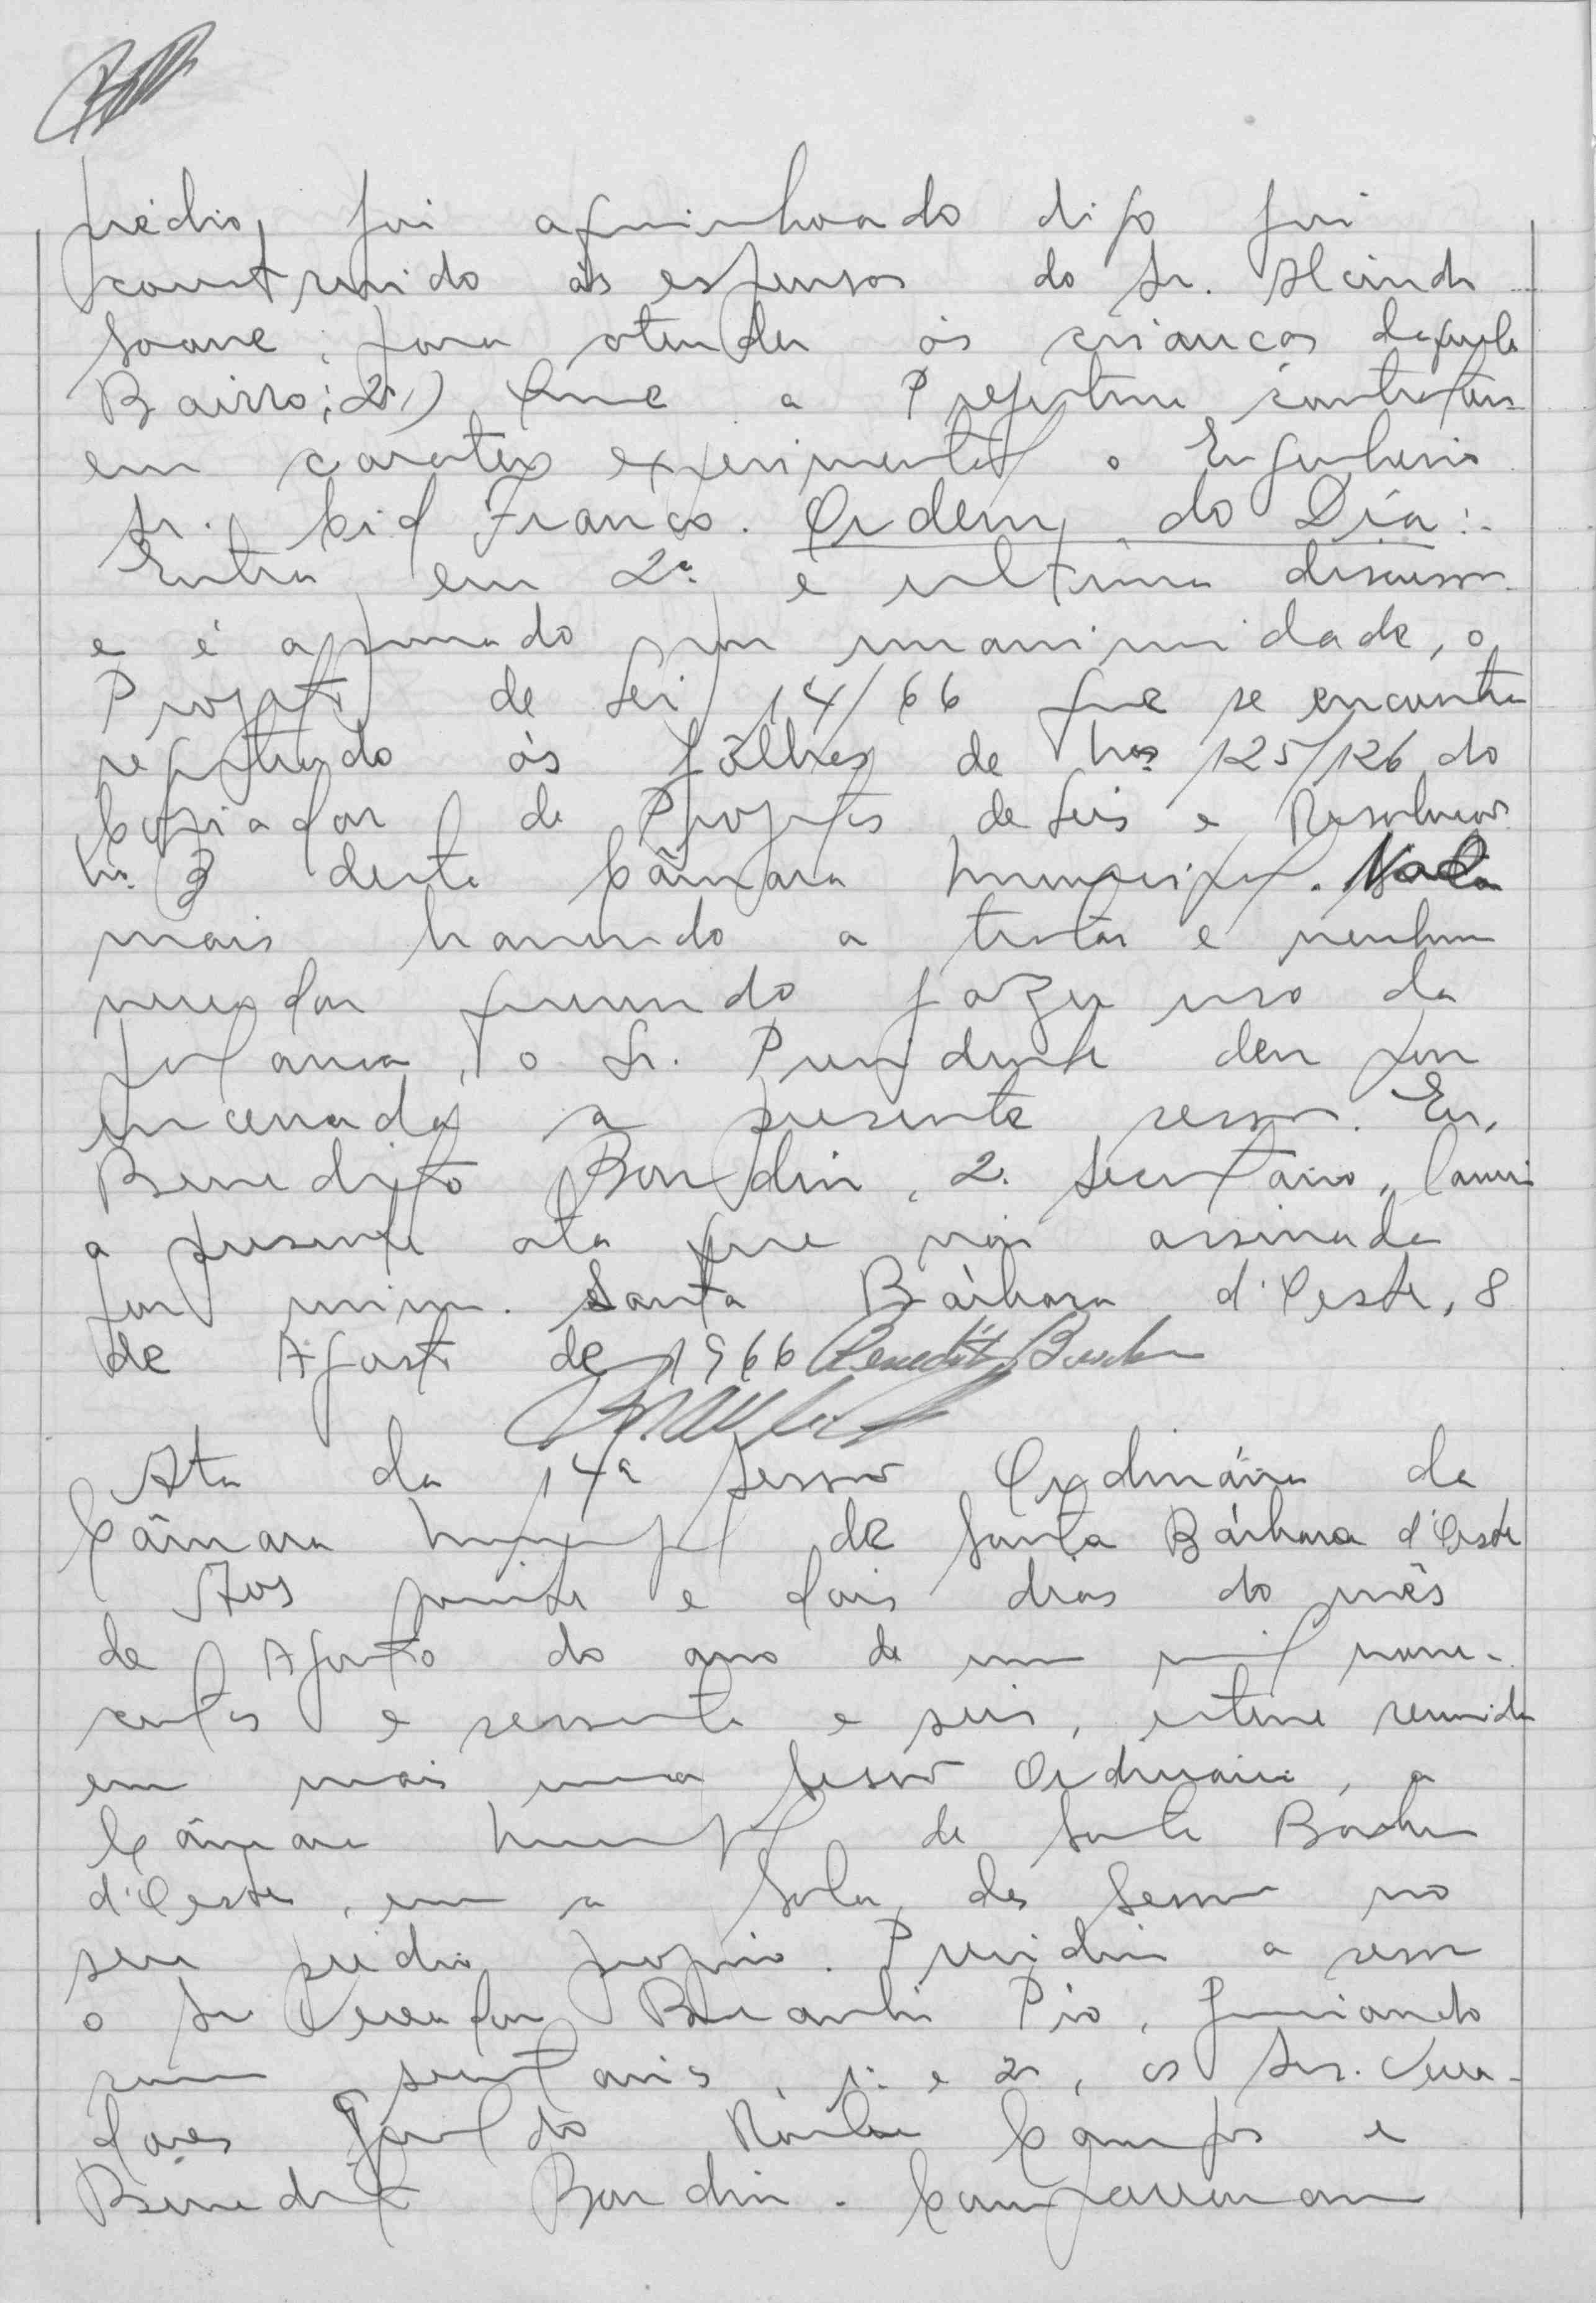 prédio, foi digo foi
construido ás espensas do Sr. Alcindo
Soave; para atender ás crianças daquele
Bairro; 2º) Que a Prefeitura contratasse
em carater experimental o Engenheiro
Sr. Cid Franco. Ordem do Dia:-
Entra em 2ª e ultima discussão
e é aprovado por unanimidade, o
Projeto de Lei 14/66 que se encontra
registrado ás fôlhas de nos 125/126 do
Copiador de Projetos de Leis e Resoluções
nº 3 desta Câmara Municipal. Nada
mais havendo a tratar e nenhum
vereador querendo fazer uso da
palavra, o Sr. Presidente deu por
encerrada a presente sessão. Eu,
Benedito Bordin, 2º Secretário, lavrei
a presente ata que vai assinada
por mim. Santa Bárbara d'Oeste, 8
de Agosto de 1966 Benedito Bordin
Ata da 14ª Sessão Ordinária da
Câmara Municipal de Santa Bárbara d'Oeste
Aos vinte e dois dias do mês
de Agosto do ano de um mil nove-
centos e sessenta e seis, esteve reunida
em mais uma Sessão Ordinária, a
Câmara Municipal de Santa Bárbara
d'Oeste, em a Sala das Sessões no
seu prédio proprio. Presidiu a sessão
o Sr Vereador Pio, funcionando
como secretários, 1º e 2º, os Srs. Verea-
dores Campos e
Benedito Bordin. Compareceram